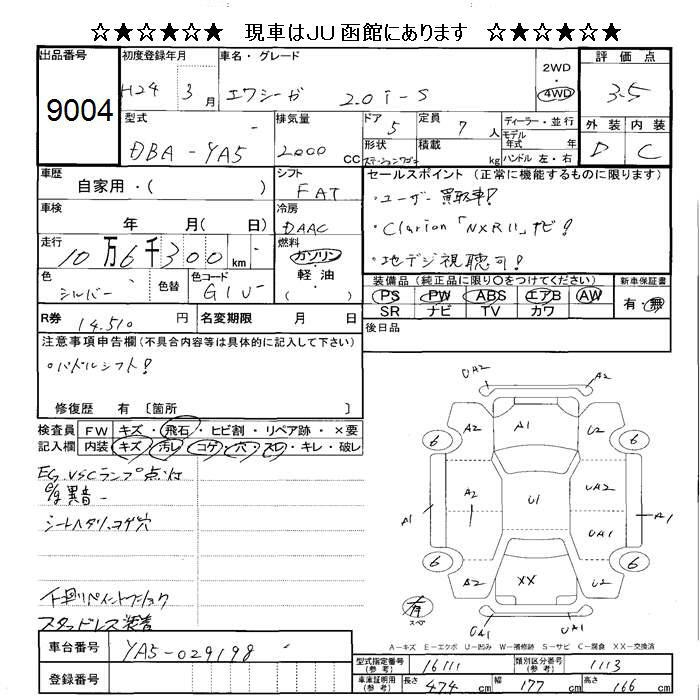 ☆★☆★☆ 現車はJU函館にあります ☆★☆★☆
出品番号
9004
初度登録年月
H24 3月
車名・グレード
エクシーガ 2.0i-S
2WD
4WD
評価点
3.5
外装 内装
D C
型式
DBA-YA5
排気量
2000 cc
ドア
5
定員
7 人
形状
ステーションワゴン
積載
kg
ディーラー・並行
モデル
年式 年
ハンドル 左・右
車歴
自家用・( )
シフト
FAT
セールスポイント(正常に機能するものに限ります)
・ユーザー買取車!
・Clarion「NXR11」ナビ!
・地デジ視聴可!
車検
年 月( 日)
冷房
DAAC
走行
10万6千300km
燃料
ガソリン
軽油
( )
色
シルバー
色替
色コード
G1U
装備品(純正品に限り○をつけてください)
PS PW ABS エアB AW
SR ナビ TV カワ
新車保証書
有・無
R券 14,510 円
名変期限 月 日
後日品
注意事項申告欄(不具合内容等は具体的に記入して下さい)
・パドルシフト!
修復歴 有 〔箇所 〕
検査員
記入欄
FW キズ・飛石・ヒビ割・リペア跡・×要
内装 キズ・汚レ・コゲ・穴・スレ・キレ・破レ
EG.VSCランプ点灯
異音
シートヘタリ、コゲ穴
スタッドレス装着
UA2 A2
A2 A1 U2
6 6
A2 U1 UA2
A1 UA1 A1
6 6
A2 XX U2
UA1 UA1
有
スペア
A-キズ E-エクボ U-凹み W-補修跡 S-サビ C-腐食 XX-交換済
車台番号
YA5-029198
登録番号
型式指定番号
(参考)
16111
類別区分番号
(参考)
1113
車庫証明用
(参考)
長さ 474 cm 幅 177 cm 高さ 166 cm